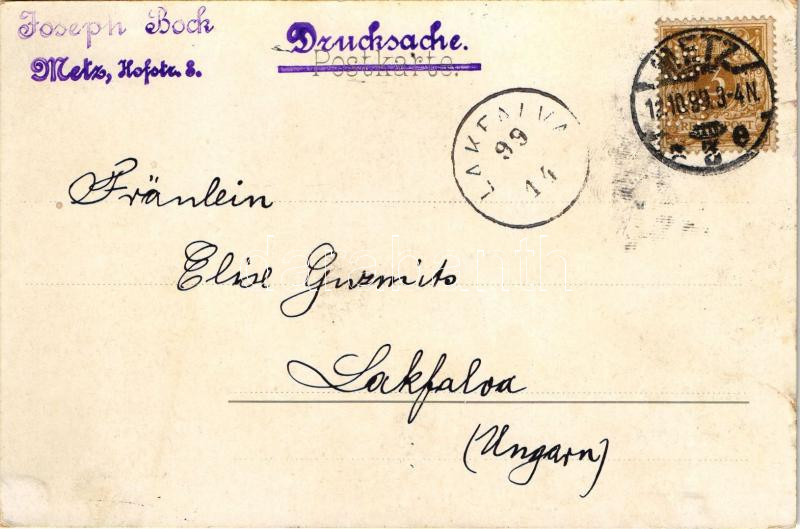 Joseph Bock
Metz, Hofstr. 8.
Drucksache.
Postkarte.
METZ
12.10.99.3-4N.
2 e
3
LAKFALVA
99
14
Fräulein
Elise Guzmits
Lakfalva
(Ungarn)